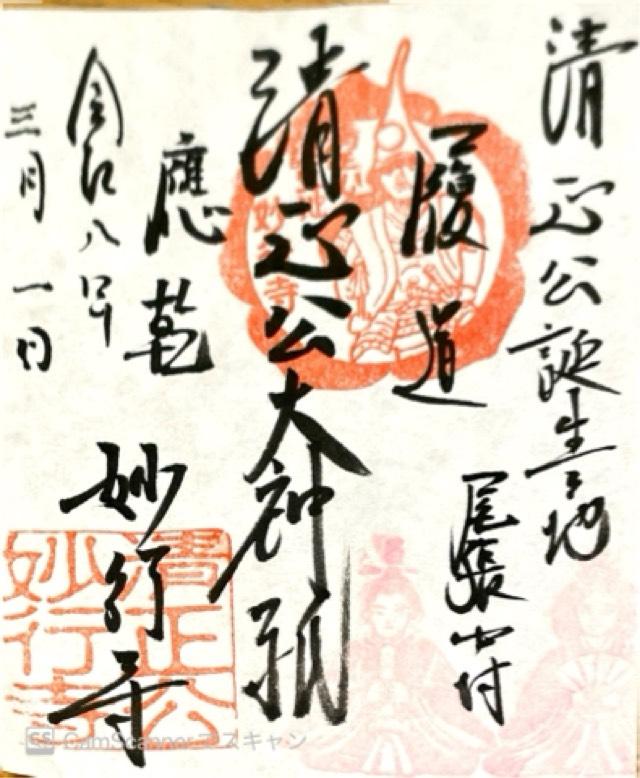 清正公誕生地
尾張中村
履道
清正公大神祇
應乾
妙行寺
令和八年
三月一日
清正公
妙行寺
CS CamScannerでスキャン